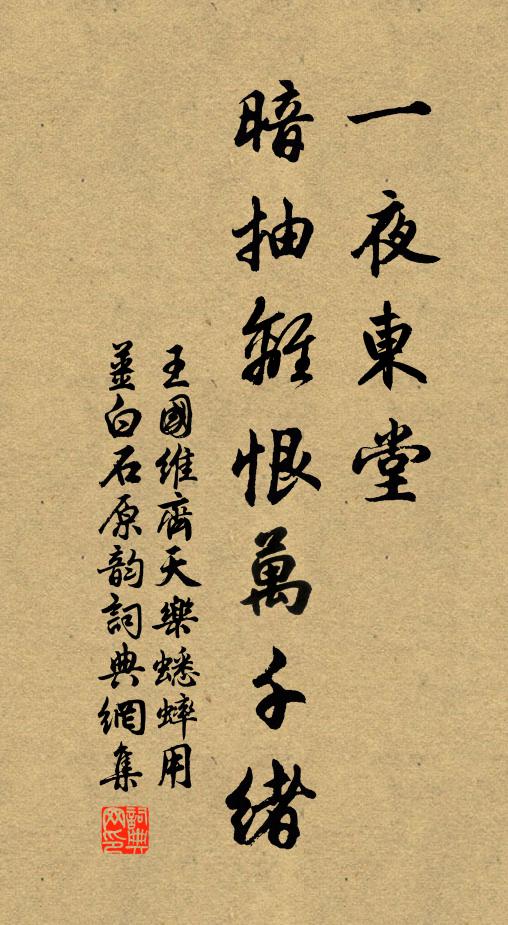 一夜東堂
暗抽離恨萬千緒
王國維齊天樂蟋蟀用
姜白石原韵詞典網集
詞典
网印